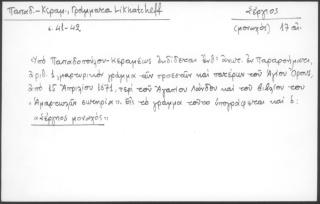 Παπαδ.-Κεραμ., Γράμματα Likhatcheff
Σέργιος
σ. 41-42
(μοναχός) 17 αι.
«Ὑπό Παπαδοπούλου-Κεραμέως ἐκδίδεται ἐνθ' ἀνωτ. ἐν Παραρτήματι,
ἀριθ. 1, μαρτυρικόν γράμμα τῶν προεστῶν καί πατέρων τοῦ Ἁγίου Ὄρους,
ἀπό 15 Ἀπριλίου 1671, περί τοῦ Ἀγαπίου Λάνδου καί τοῦ βιβλίου του
«Ἁμαρτωλῶν σωτηρία». Εἰς τό γράμμα τοῦτο ὑπογράφεται καί ὁ:
«Σέργιος μοναχός»